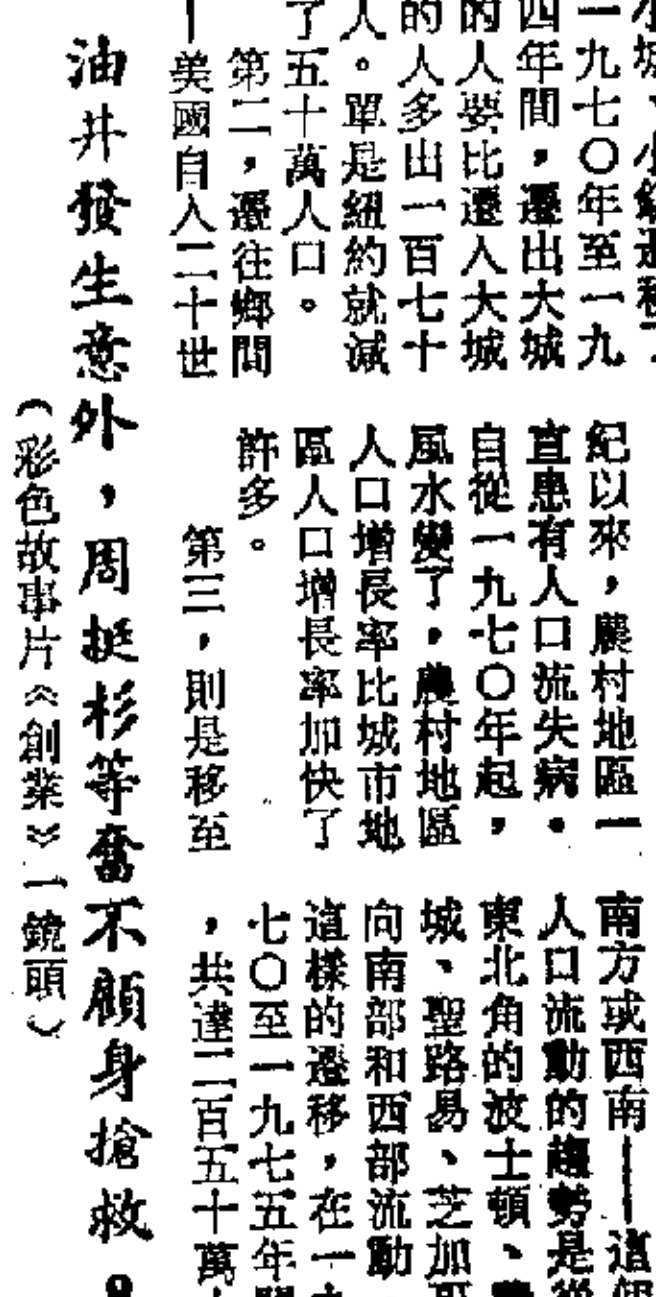 小城、小鎮遷移了
一九七〇年至一九
四年間，遷出大城
的人要比遷入大城
的人多出一百七十
人。單是紐約就減
了五十萬人口。
第二，遷往鄉間
—美國自入二十世
紀以來，農村地區一
直患有人口流失病。
自從一九七〇年起，
風水變了，農村地區
人口增長率比城市地
區人口增長率加快了
許多。
第三，則是移至
南方或西南——這個
人口流動的趨勢是從
東北角的波士頓、
城、聖路易、芝加哥
向南部和西部流動
這樣的遷移，在一九
七〇至一九七五年間
，共達二百五十萬
油井發生意外，周挺杉等奮不顧身搶救。
（彩色故事片《創業》一鏡頭）